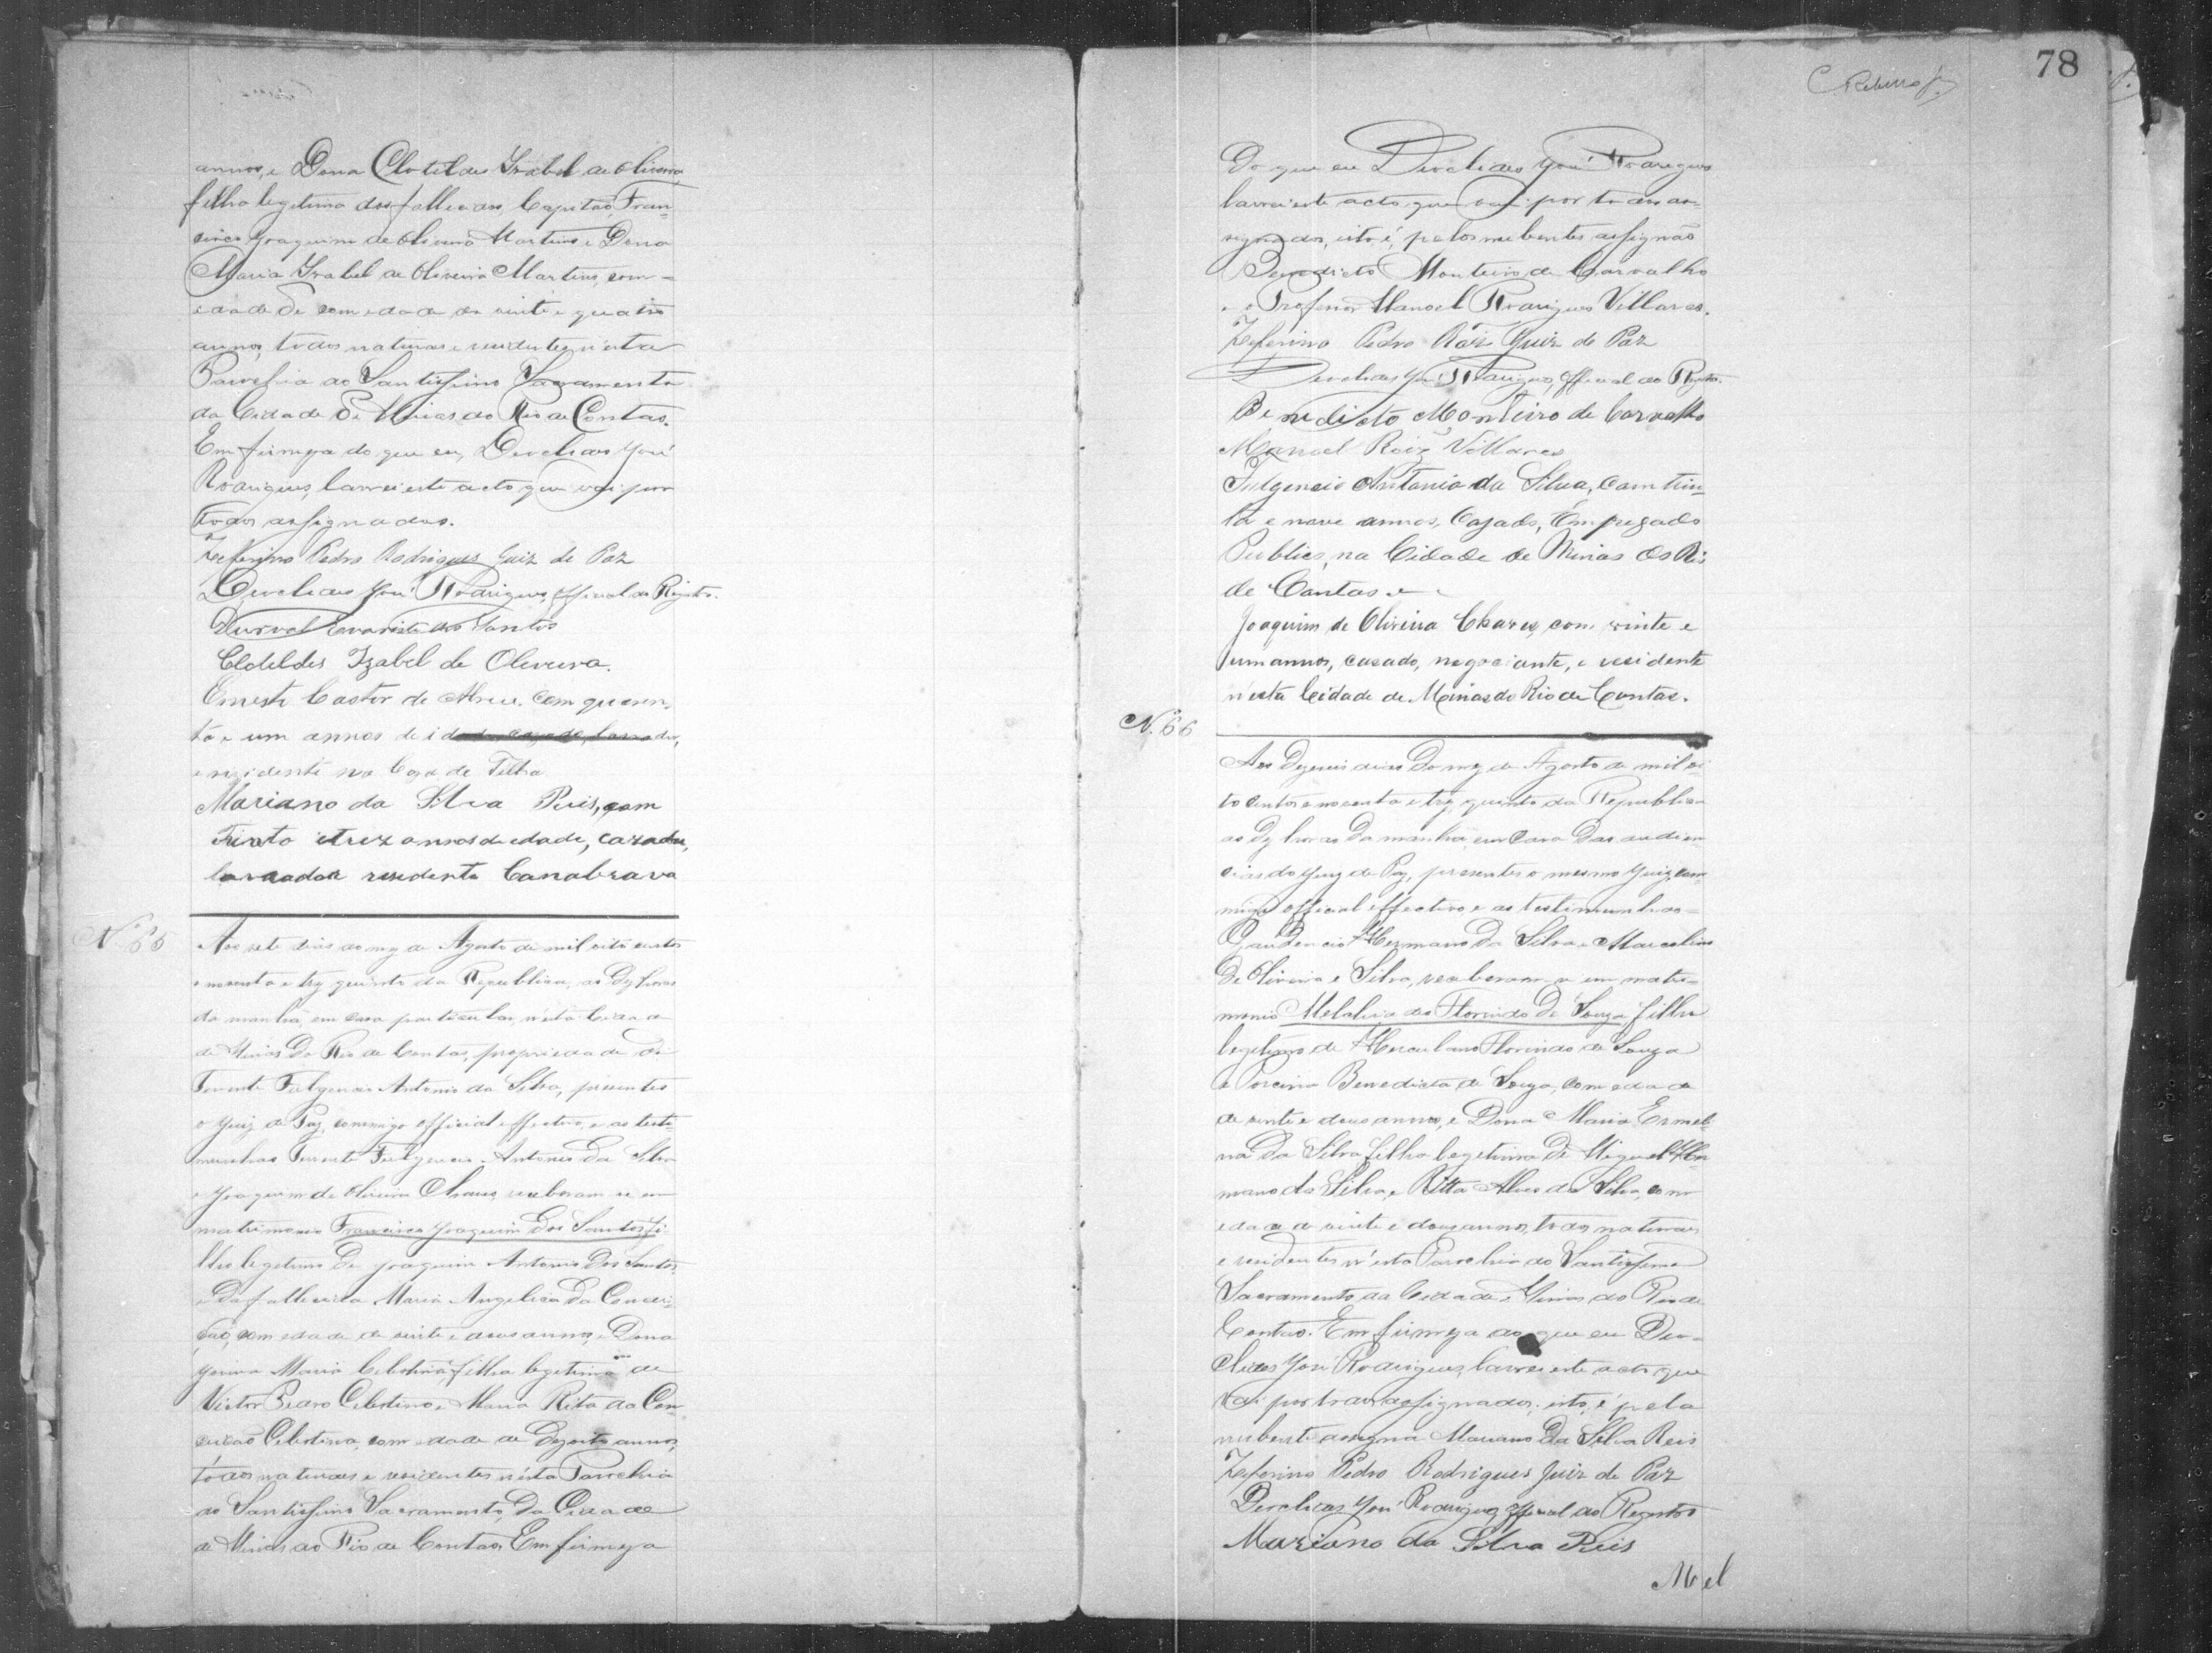 annos, e Dona Clotildes Izabel de Oliveira
filha legitima dos fallecidos Capitão Fran-
cisco Joaquim de Oliveira Martins e Dona
Maria Izabel de Oliveira Martins, com=
edade de com edade de vinte e quatro
annos, todos naturaes e residentes n'esta
Parochia do Santissimo Sacramento
da Cidade de Minas do Rio de Contas.
Em firmeza do que eu, Deoclides José
Rodrigues, lavrei este acto que vai por
todos assignados.
Zeferino Pedro Rodrigues Juiz de Paz
Deoclides José Rodrigues, Official do Registro.
Durval Evaristo dos Santos
Clotildes Izabel de Oliveira.
Ernesto Castor de Abreu, com quaren-
ta e um annos de idade, cazado, lavrador,
e rizidente na Casa de Telha
Mariano da Silva Reis, com
Trinta e trez annos de edade, cazado,
lavrador residente Canabrava
N. 65
Aos sete dias do mez de Agosto de mil oito centos
e noventa e trez quinto da Republica, as Dez horas
da manhã, em casa particular, n'esta Cidade
de Minas Do Rio de Contas, propriedade do
Tenente Fulgencio Antonio da Silva, presentes
o Juiz de Paz, commigo official effectivo, e as teste-
munhas Tenente Fulgencio Antonio Da Silva
e Joaquim de Oliveira Chaves, receberam se em
matrimonio Francisco Joaquim Dos Santos, fi-
lho legitimo De Joaquim Antonio Dos Santos
e Da fallecida Maria Angelica Da Concei-
ção, com edade de vinte e dous annos, e Dona
Maria Celestina, filha legitima de
Victor Pedro Celestino e Maria Rita da Con-
ceição Celestina, com edade de Dezoito annos,
todos naturaes e residentes n'esta Parochia
do Santissimo Sacramento, Da Cidade
de Minas do Rio de Contas. Em firmeza
78
C Ribeiro Jr.
Do que eu Deoclides José Rodrigues
lavrei este acto que vai por todos as-
signados, isto é, pelos nubentes assignão
Benedicto Monteiro de Carvalho
e o Professor Manoel Rodrigues Villares.
Zeferino Pedro Roiz Juiz de Paz
Deoclides José Rodrigues, Official do Regtro.
Benedicto Monteiro de Carvalho
Manoel Roiz Villares
Fulgencio Antonio da Silva, com trin-
ta e nove annos, Cazado, Empregado
Publico, na Cidade de Minas do Rio
de Contas e
Joaquim de Oliveira Chaves, com vinte e
um annos, casado, negociante, e residente
n'esta Cidade de Minas do Rio de Contas.
N. 66
Aos Dezeseis dias Do mez de Agosto de mil oi-
to centos e noventa e trez, quinto da Republica
as Dez horas Da manhã, em Casa Das audien-
cias do Juiz de Paz, presentes o mesmo Juiz, com-
migo official effectivo e as testemunhas=
Gaudencio Hermano Da Silva e Marcolino
De Oliveira e Silva, receberam se em matri-
monio Melchiades Florindo De Souza filho
legitimo de Herculano Florindo de Souza
e Porcina Benedicta de Souza, com edade
de vinte e dous annos, e Dona Maria Ermeli-
na Da Silva filha legitima De Miguel Her
mano da Silva, e Ritta Alves da Silva, com
edade de vinte e dous annos, todos naturaes
e residentes n'esta Parochia do Santissimo
Sacramento da Cidade de Minas do Rio de
Contas. Em firmeza do que eu Deo-
clides José Rodrigues, lavrei este acto que
vai por todos assignados, isto, é pela
nubente assigna Mariano Da Silva Reis
Zeferino Pedro Rodrigues Juiz de Paz
Deoclides José Rodrigues, Official do Registro
Mariano da Silva Reis
Mel